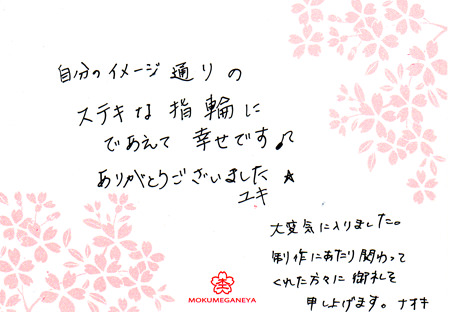 自分のイメージ通りの
ステキな指輪に
であえて幸せです♪
ありがとうございました☆
ユキ
大変気に入りました。
制作にあたり関わって
くれた方々に御礼を
申し上げます。ナオキ
MOKUMEGANEYA